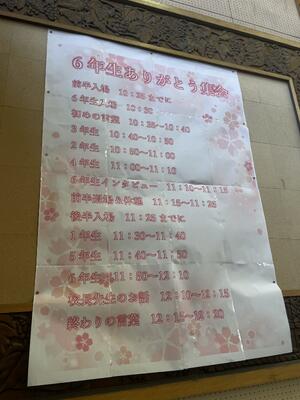 6年生ありがとう集会
前半入場 10:25までに
6年生入場 10:30
初めの言葉 10:35~10:40
3年生 10:40~10:50
2年生 10:50~11:00
4年生 11:00~11:10
6年生インタビュー 11:10~11:15
前半退場&休憩 11:15~11:25
後半入場 11:25までに
1年生 11:30~11:40
5年生 11:40~11:50
6年生 11:50~12:10
校長先生のお話 12:10~12:15
終わりの言葉 12:15~12:20